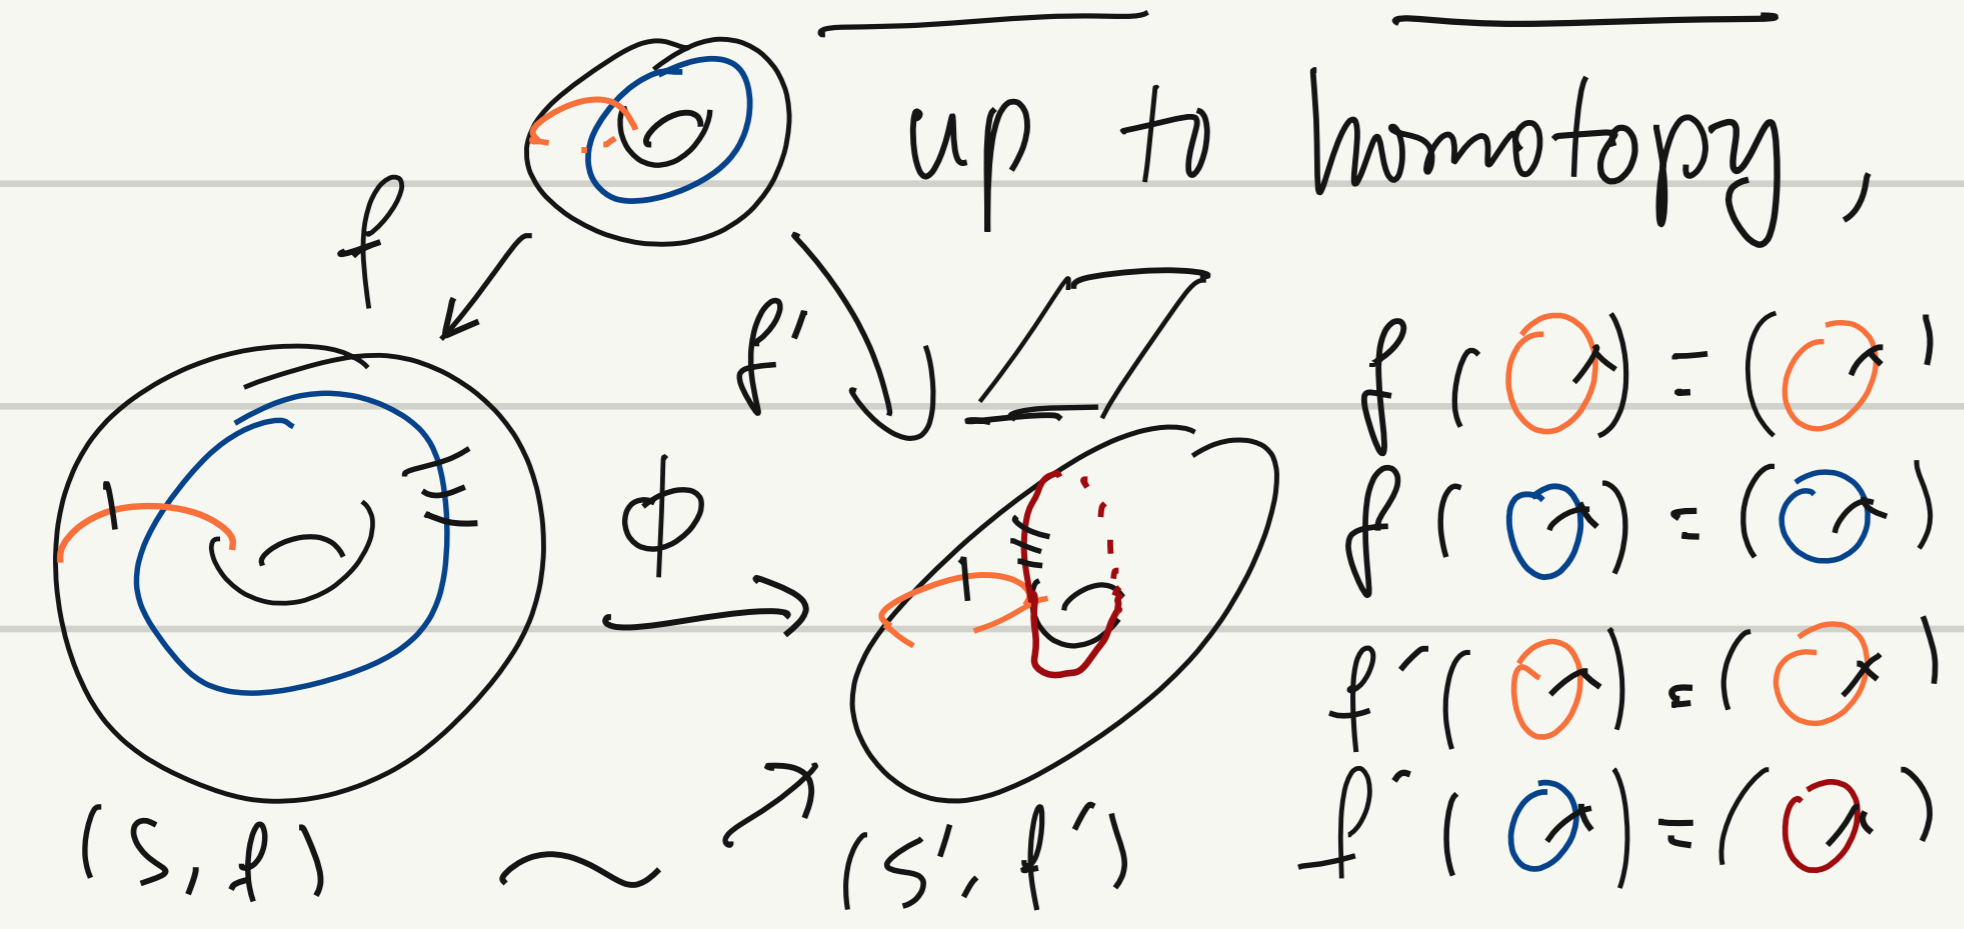 up to homotopy,
f
f'
f ( ) = ( )
f ( ) = ( )
ϕ
f' ( ) = ( )
f' ( ) = ( )
(S, f) ~ (S', f')